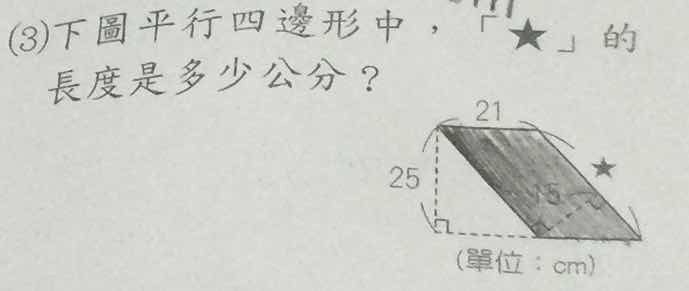 (3)下圖平行四邊形中，「★」的
長度是多少公分？
21
25
★
15
(單位：cm)